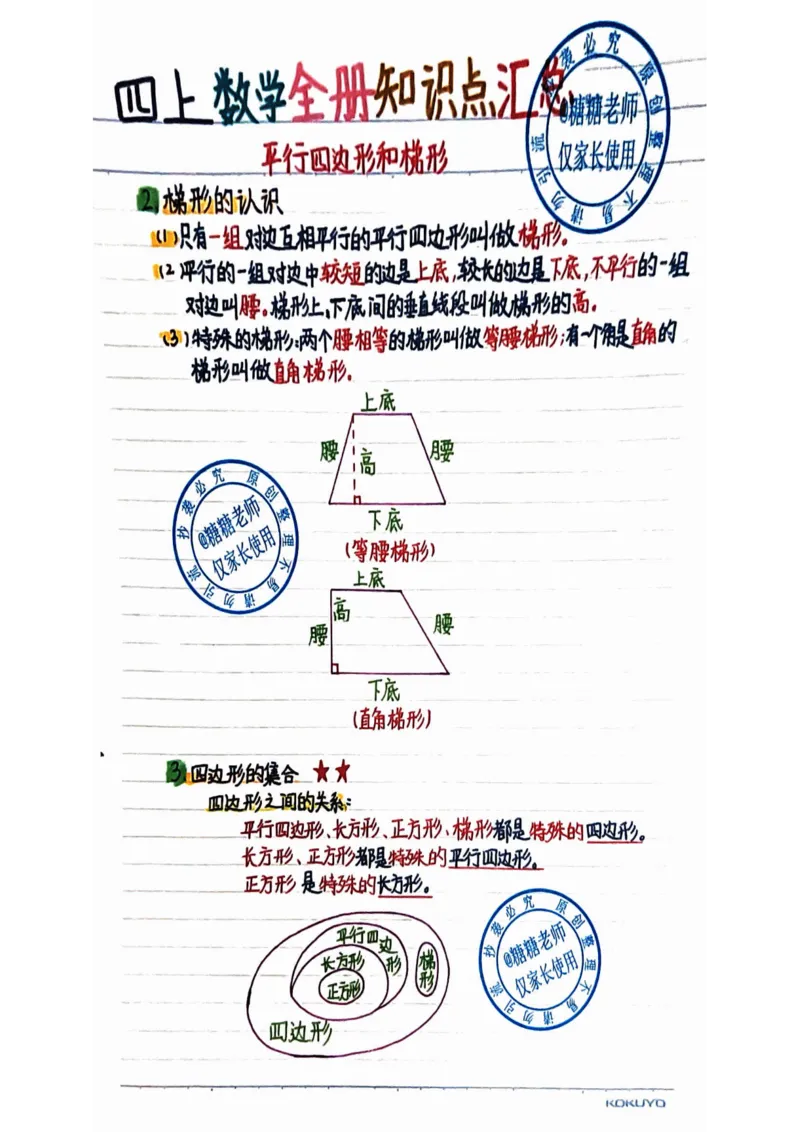 四上数学全册知识点汇总
平行四边形和梯形
2.梯形的认识
(1)只有一组对边互相平行的平行四边形叫做梯形。
(2平行的一组对边中较短的边是上底,较长的边是下底,不平行的一组
对边叫腰。梯形上、下底间的垂直线段叫做梯形的高。
(3)特殊的梯形:两个腰相等的梯形叫做等腰梯形;有一个角是直角的
梯形叫做直角梯形。
上底
腰 高 腰
下底
(等腰梯形)
上底
高
腰 腰
下底
(直角梯形)
3.四边形的集合 ★★
四边形之间的关系:
平行四边形、长方形、正方形、梯形都是特殊的四边形。
长方形、正方形都是特殊的平行四边形。
正方形是特殊的长方形。
平行四边形
长方形
正方形
梯形
四边形
抄袭必究 原创整理不易 请勿引流
@糖糖老师
仅家长使用
抄袭必究 原创整理不易 请勿引流
@糖糖老师
仅家长使用
抄袭必究 原创整理不易 请勿引流
@糖糖老师
仅家长使用
KOKUYO